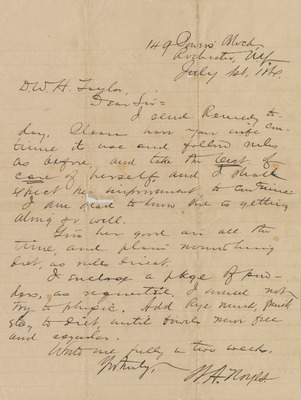 149 Powers Block
Rochester, N.Y.
July 1st, 
D.W. H. Taylor,
Dear Sir=
I send Remedy to-
day. Please have your wife con-
tinue it use and follow rules
as before, and take the best of
care of herself and I shall
expect the improvement to continue
I am glad to know she is getting
along so well.
Give her good air all the
time and plain nourishing
diet, as rules direct.
I enclose a page of
as requested. I would not
try to physic. Add Rye mush,
to diet, until bowels move free
and regular.
Write me fully in two weeks.
Yo truly,
W.A. Noyes